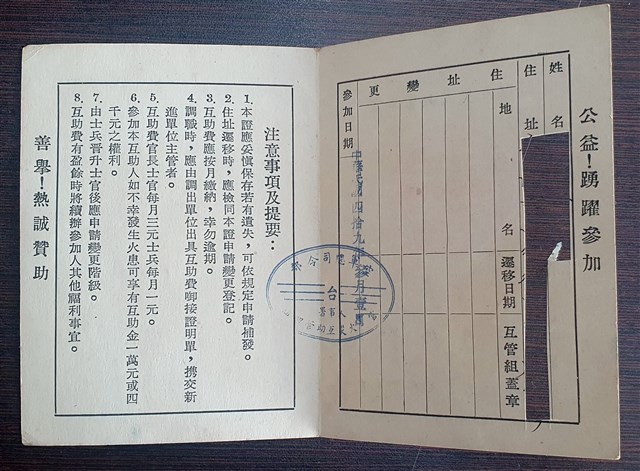 公益！踴躍參加
姓名
住址
住址變更
地名
遷移日期
互管組蓋章
參加日期
中華民國四拾九年 月壹日
注意事項及提要：
1.本證應妥慎保存若有遺失，可依規定申請補發。
2.住址遷移時，應檢同本證申請變更登記。
3.互助費應按月繳納，幸勿逾期。
4.調職時，應由調出單位出具互助費卸接證明單，携交新
進單位主管者。
5.互助費官長士官每月三元士兵每月一元。
6.參加本互助人如不幸發生火患可享有互助金一萬元或四
千元之權利。
7.由士兵晉升士官後應申請變更階級。
8.互助費有盈餘時將續辦參加人其他福利事宜。
善舉！熱誠贊助